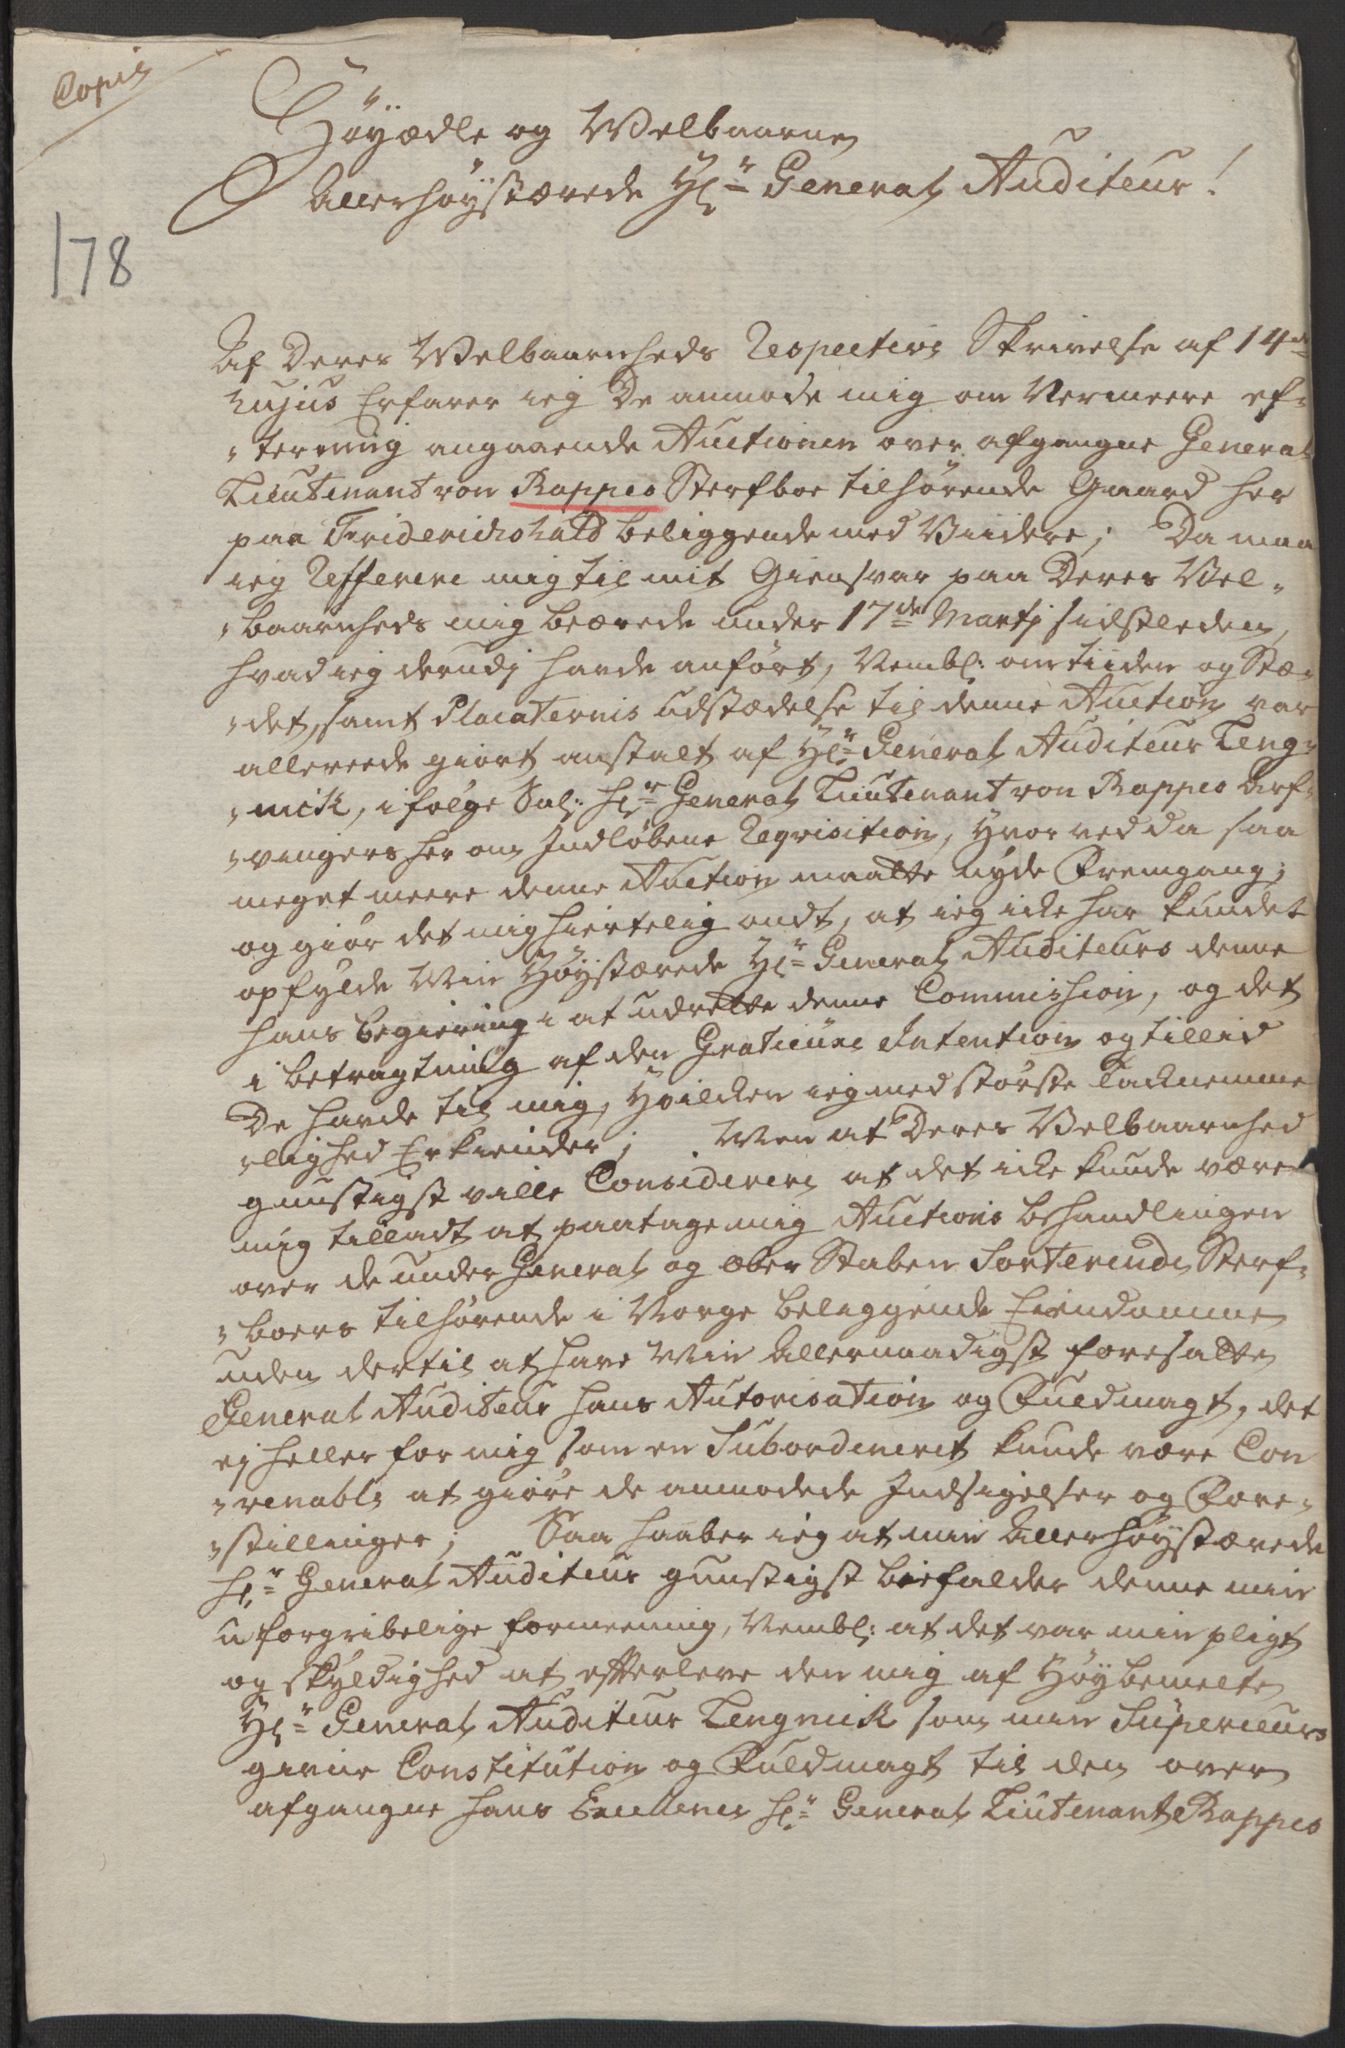 Copie
Höyædle og Welbaarne
Allerhöystærede Hr. General Auditeur!
178
Af Deres Welbaarnheds Respective Skrivelse af 14de
hujus Erfarer ieg De anmode mig om Nermeere ef-
-terretning angaaende Auctionen over afgangne General
Lieutenant von Rappes Sterfboe tilhörende Gaard her
paa Friderichshald beliggende med Viidere; Da maa
ieg Refferere mig til mit Giensvar paa Deres Vel-
-baarnheds mig beærede under 17de Martj sidstleden,
hvad ieg derudj havde anfört, Nembl: om tiiden og Stæ-
-det, samt Placaternis udstædelse til denne Auction var
allereede giort anstalt af Hr. General Auditeur Leng-
-nick, i fölge Sal: Hr. General Lieutenant von Rappes Arf-
-vingers her om Indlöbene Reqvisition, Hvor ved da saa
meget meere denne Auction maatte nyde Fremgang;
og giör det mig hiertelig ondt, at ieg icke har kundet
opfylde Min Höystærede Hr. General Auditeurs denne
hans begiering i at udrette denne Commission, og det
i betragtning af den Gratieuse Intention og tillid
De havde til mig, Hvilcken ieg med störste Tacknemme
-lighed Erkiender; Men at Deres Velbaarnhed
gunstigst ville Considerere at det icke kunde være
mig tilladt at paatage mig Auctions behandlingen
over de under General og Ober Staben Sorterende Sterf-
-boers tilhörende i Norge beliggende Eiendomme
uden dertil at have Min Allernaadigst foresatte
General Auditeur hans Autorisation og Fuldmagt, det
ej heller for mig som en Subordineret kunde være Con
-venable at giöre de anmodede Indsigelser og Fore-
-stillinger; Saa haaber ieg at min Allerhöystærede
Hr. General Auditeur gunstigst biefalder denne min
uforgribelige formeening, Nembl: at det var min pligt
og skyldighed at efterleve den mig af Höybemelte
Hr. General Auditeur Lengnick som min Superieurs
givne Constitution og Fuldmagt til den over
afgangne hans Excellence Hr. General Lieutenant Rappes